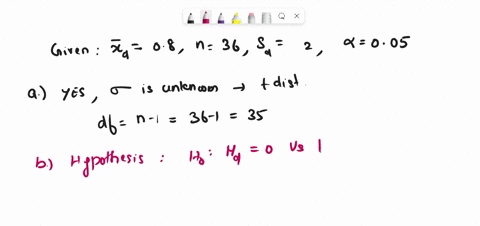 Given : x̄d = 0.8, n = 36, Sd = 2, α = 0.05
a.) YES, σ is unknown → t dist.
df = n-1 = 36-1 = 35
b.) Hypothesis : H₀ : Md = 0 Vs |